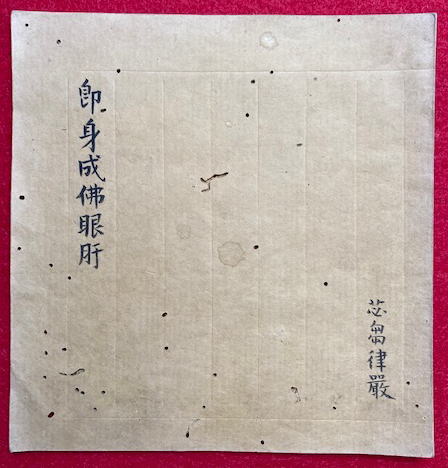 卽身成佛眼肝
苾芻律嚴